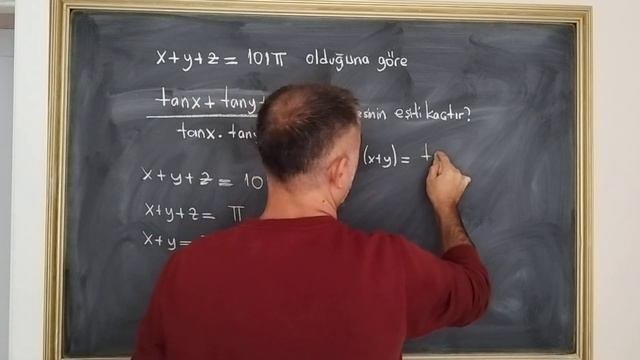 x+y+z = 101π olduğuna göre
tanx + tany
tanx . tany
eşiti kaçtır?
x+y+z = 10
(x+y) = t
x+y+z = π
x+y =